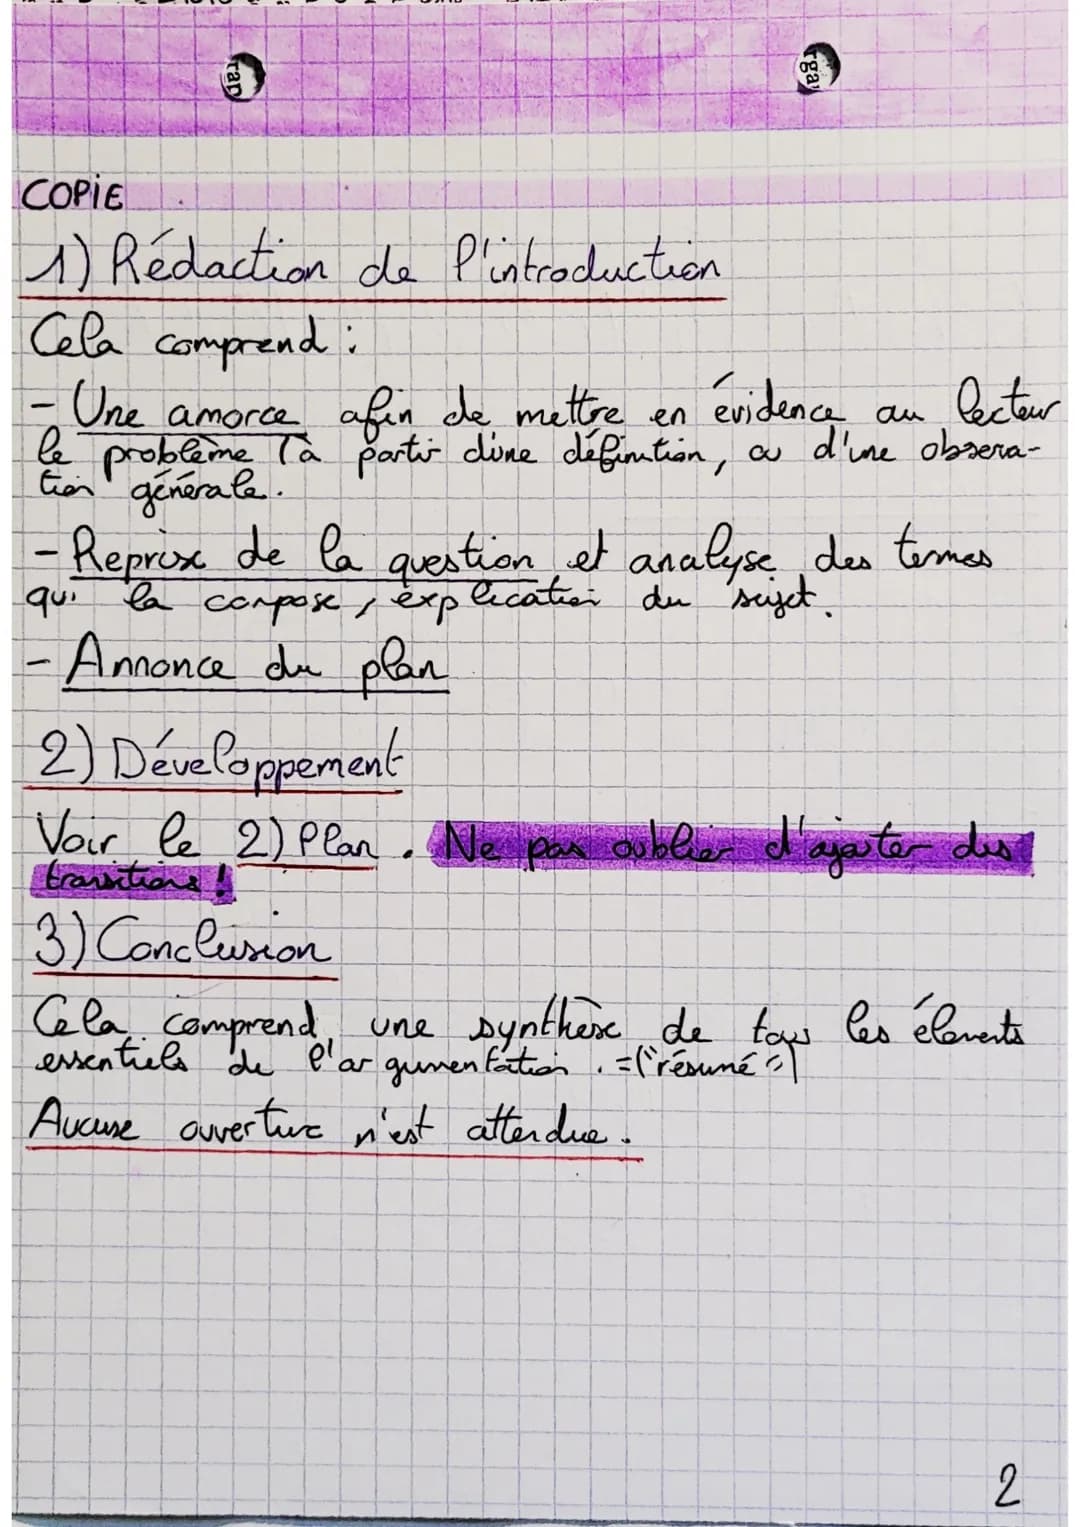 ran
rgan
COPIE
1) Rédaction de l'introduction
Cela comprend :
- Une amorce afin de mettre en évidence au lecteur
le problème à partir d'une définition, ou d'une observa-
tion générale.
- Reprise de la question et analyse des termes
qui la compose, explication du sujet.
- Annonce du plan
2) Développement
Voir le 2) Plan. Ne pas oublier d'ajouter des
transitions !
3) Conclusion
Cela comprend une synthèse de tous les éléments
essentiels de l'argumentation. =("résumé")
Aucune ouverture n'est attendue.
2